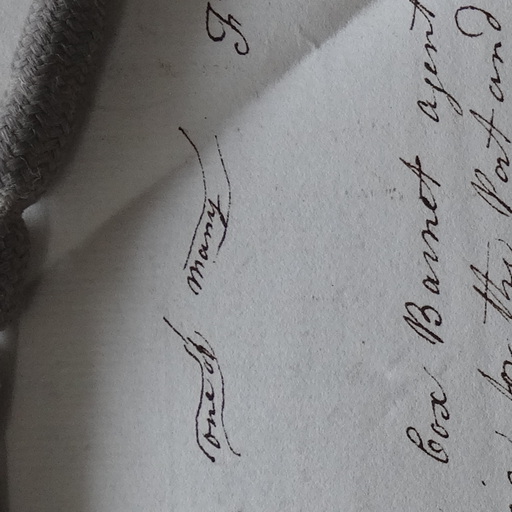 one of many F
Cox Barnet agent
for the Port and